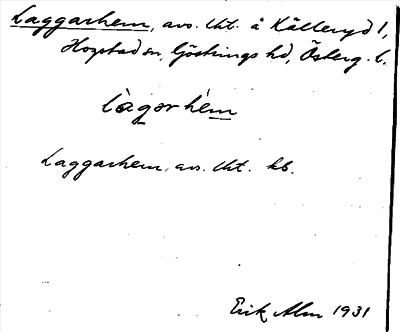 Laggarhem, avs. lht. å Källeryd 1,
Hogstad sn, Göstrings hd, Österg. l.
làgərhèm
Laggarhem, avs. lht. kb.
Erik Alm 1931